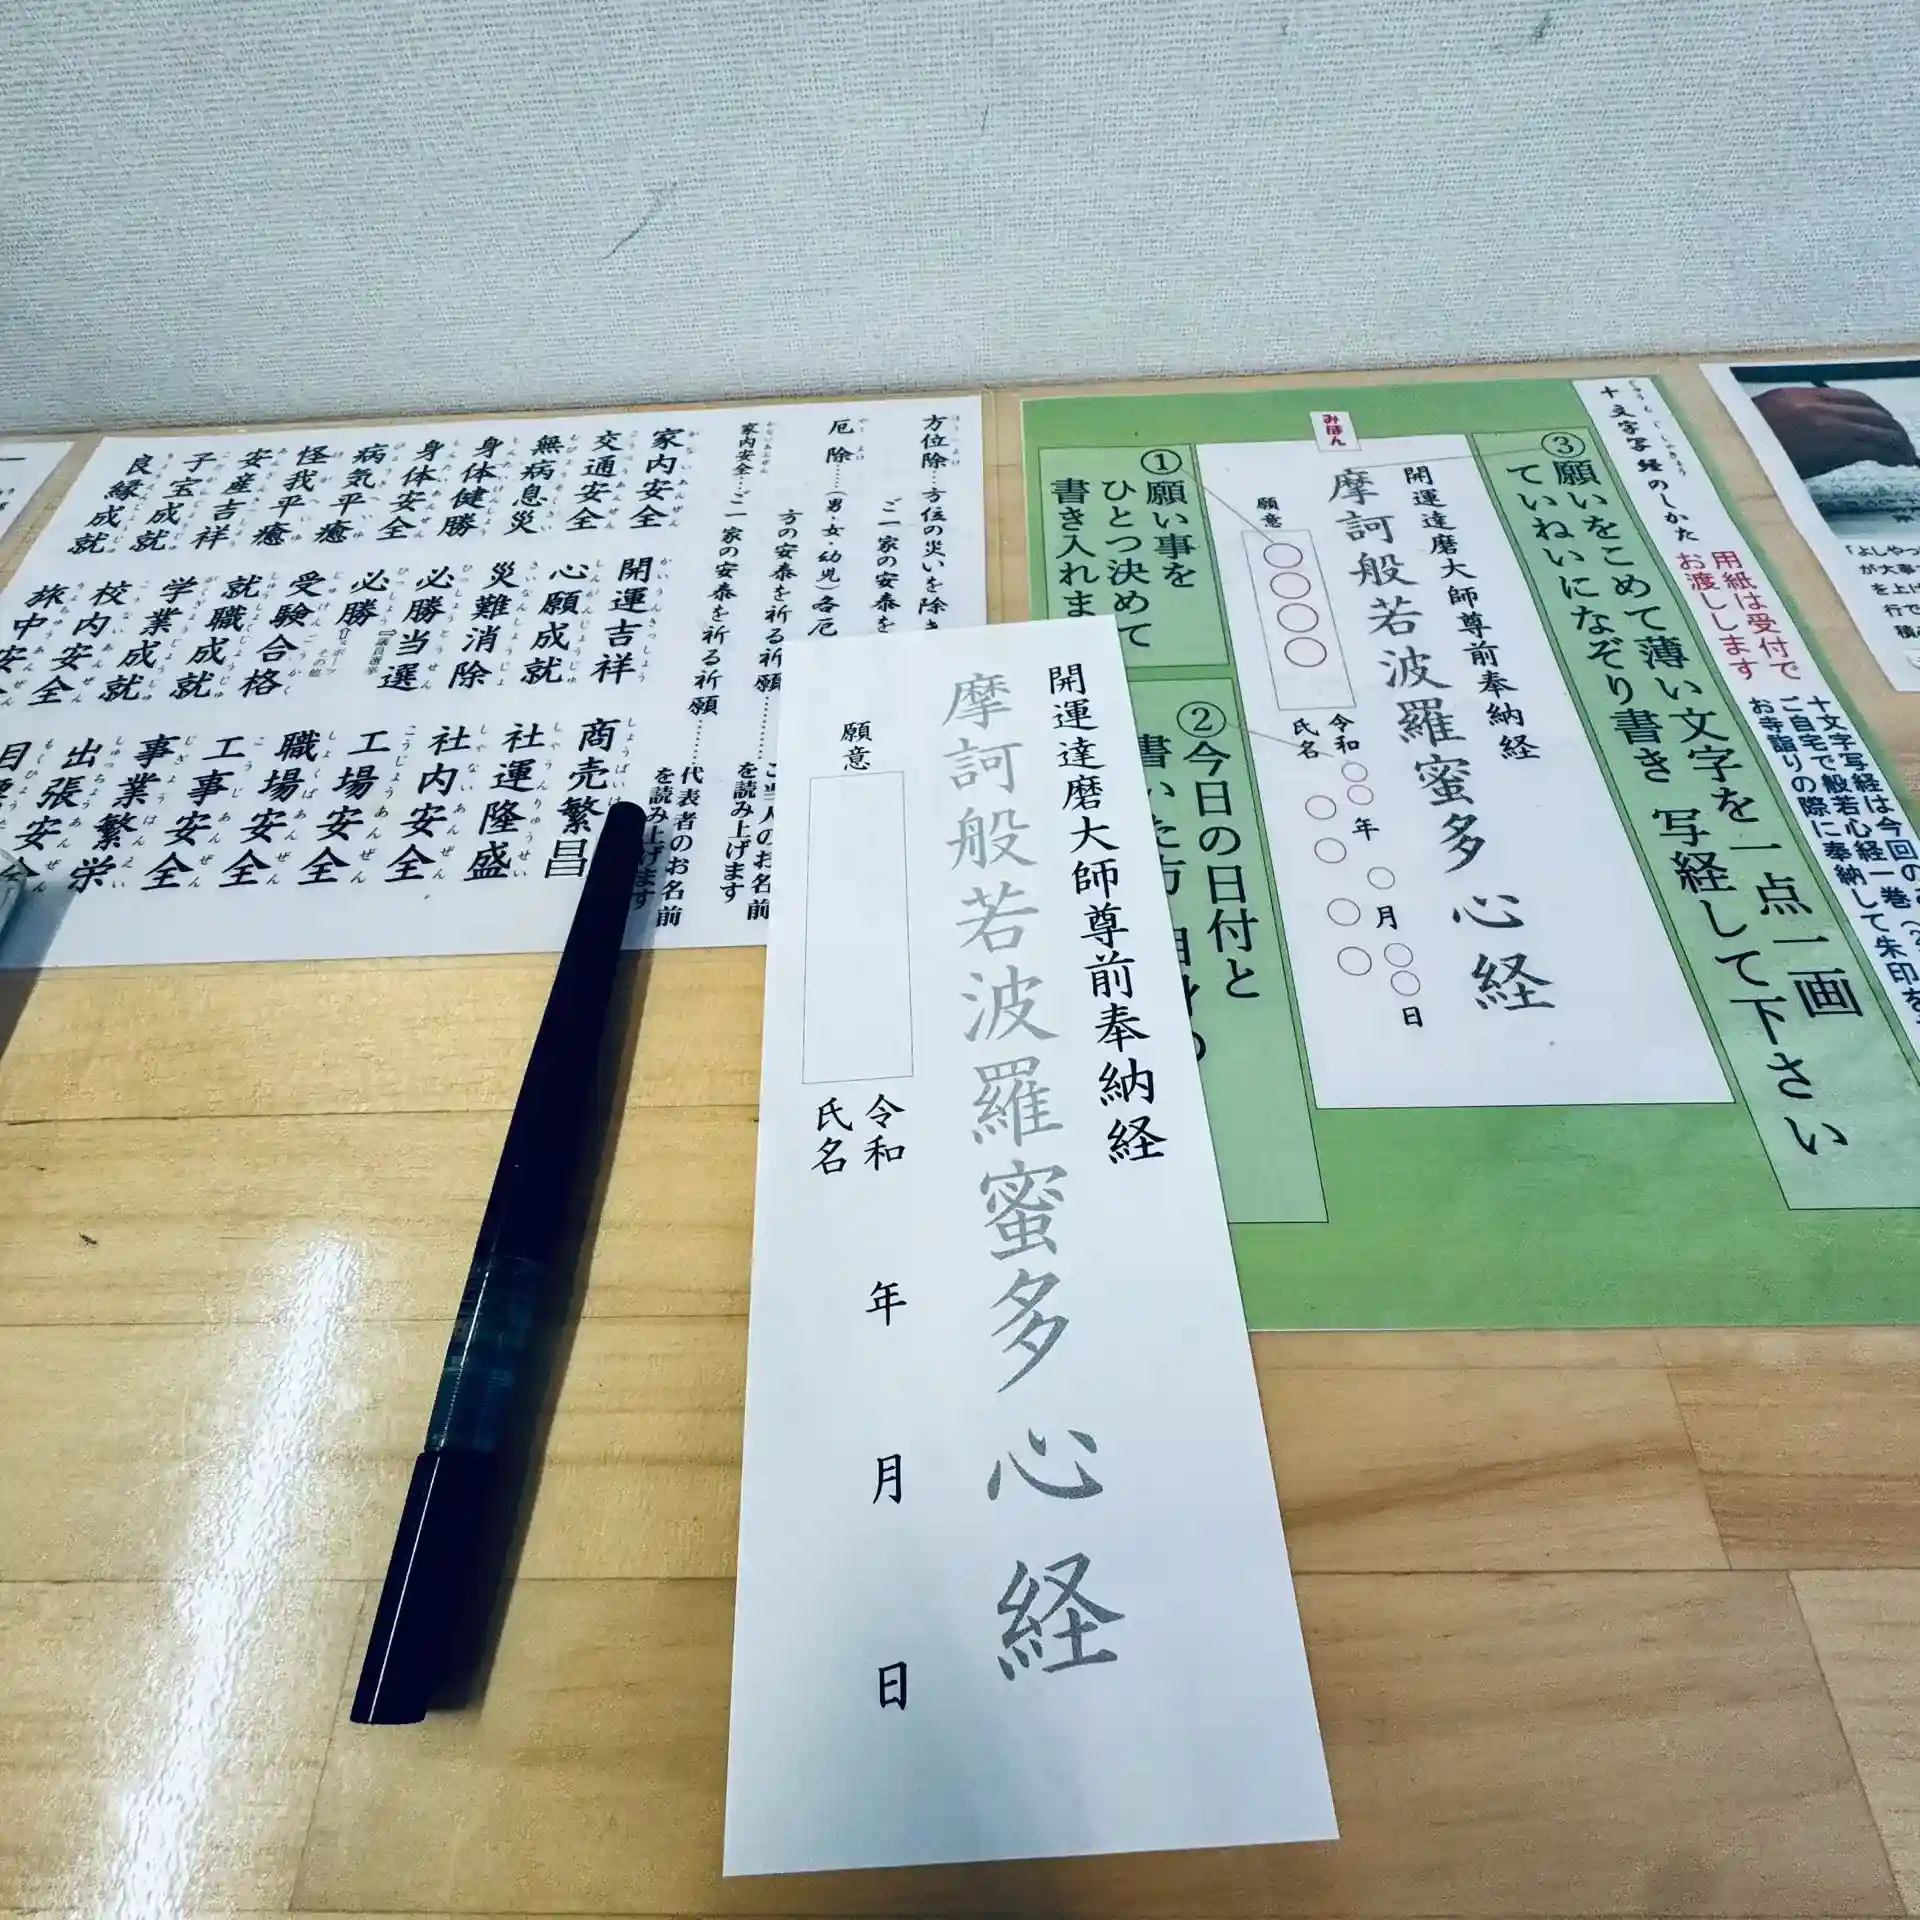 開運達磨大師尊前奉納経
摩訶般若波羅蜜多心経
願意
令和 年 月 日
氏名
十文字写経のしかた
じゅうもじしゃきょう
用紙は受付で
お渡しします
十文字写経は今回の
ご自宅で般若心経一巻
お寺詣りの際に奉納して朱印を
③願いをこめて薄い文字を一点一画
ていねいになぞり書き 写経して下さい
みほん
開運達磨大師尊前奉納経
摩訶般若波羅蜜多心経
願意
○○○○
令和○○年○月○○日
氏名 ○○ ○○
①願い事を
ひとつ決めて
書き入れま
②今日の日付と
書いた方
方位除…方位の災いを除き
ご一家の安泰を
厄除……(男・女・幼児)各厄
方の安泰を祈る祈願………ご当人のお名前
を読み上げます
家内安全…ご一家の安泰を祈る祈願……代表者のお名前
を読み上げます
家内安全
交通安全
無病息災
身体健勝
身体安全
病気平癒
怪我平癒
安産吉祥
子宝成就
良縁成就
開運吉祥
心願成就
災難消除
必勝当選
議員選挙
必勝
スポーツ
その他
受験合格
就職成就
学業成就
校内安全
旅中安全
商売繁昌
社運隆盛
社内安全
工場安全
職場安全
工事安全
事業繁栄
出張安全
「よしやっ
が大事
を上げ
行で
積み